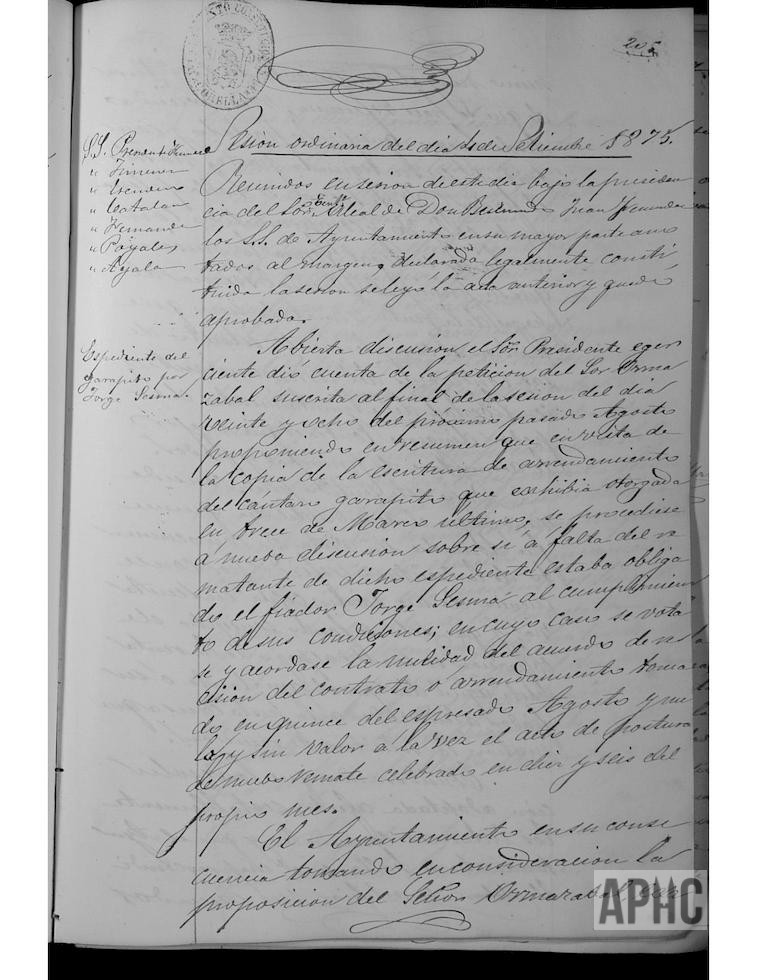 205
Sesion ordinaria del dia 4 de Setiembre 1875.
S.S. Presidente
" Jimenez
" Catalan
" Fernandez
" Poyales
" Ayala
Reunidos en sesion de este dia bajo la presiden
cia del Sor. Tente. Alcalde Don Juan
los S.S. de Ayuntamiento en su mayor parte ano
tados al margen, y declarada legalmente consti
tuida la sesion se leyó la acta anterior y quedó
aprobada.
Espediente del
garapito por
Jorge Sesma.
Abierta discusion el Sor. Presidente eger
ciente dió cuenta de la peticion del Sor Orma
zabal suscrita al final de la sesion del dia
veinte y ocho del próximo pasado Agosto
proponiendo en resumen que en vista de
la copia de la escritura de arrendamiento
del cantaro garapito que exhibia otorgada
en trece de Marzo ultimo, se procediese
á nueva discusion sobre si á falta del re
matante de dicho espediente estaba obliga
do el fiador Jorge Sesma al cumplimien
to de sus condiciones; en cuyo caso se vota
se y acordase la nulidad del acuerdo de res
cision del contrato o arrendamiento toma
do en quince del espresado Agosto y nu
lo y sin valor á la vez el acto de postura
de nuebo remate celebrado en diez y seis del
propio mes.
El Ayuntamiento en su conse
cuencia tomando en consideracion la
proposicion del Señor Ormazabal,
APHC